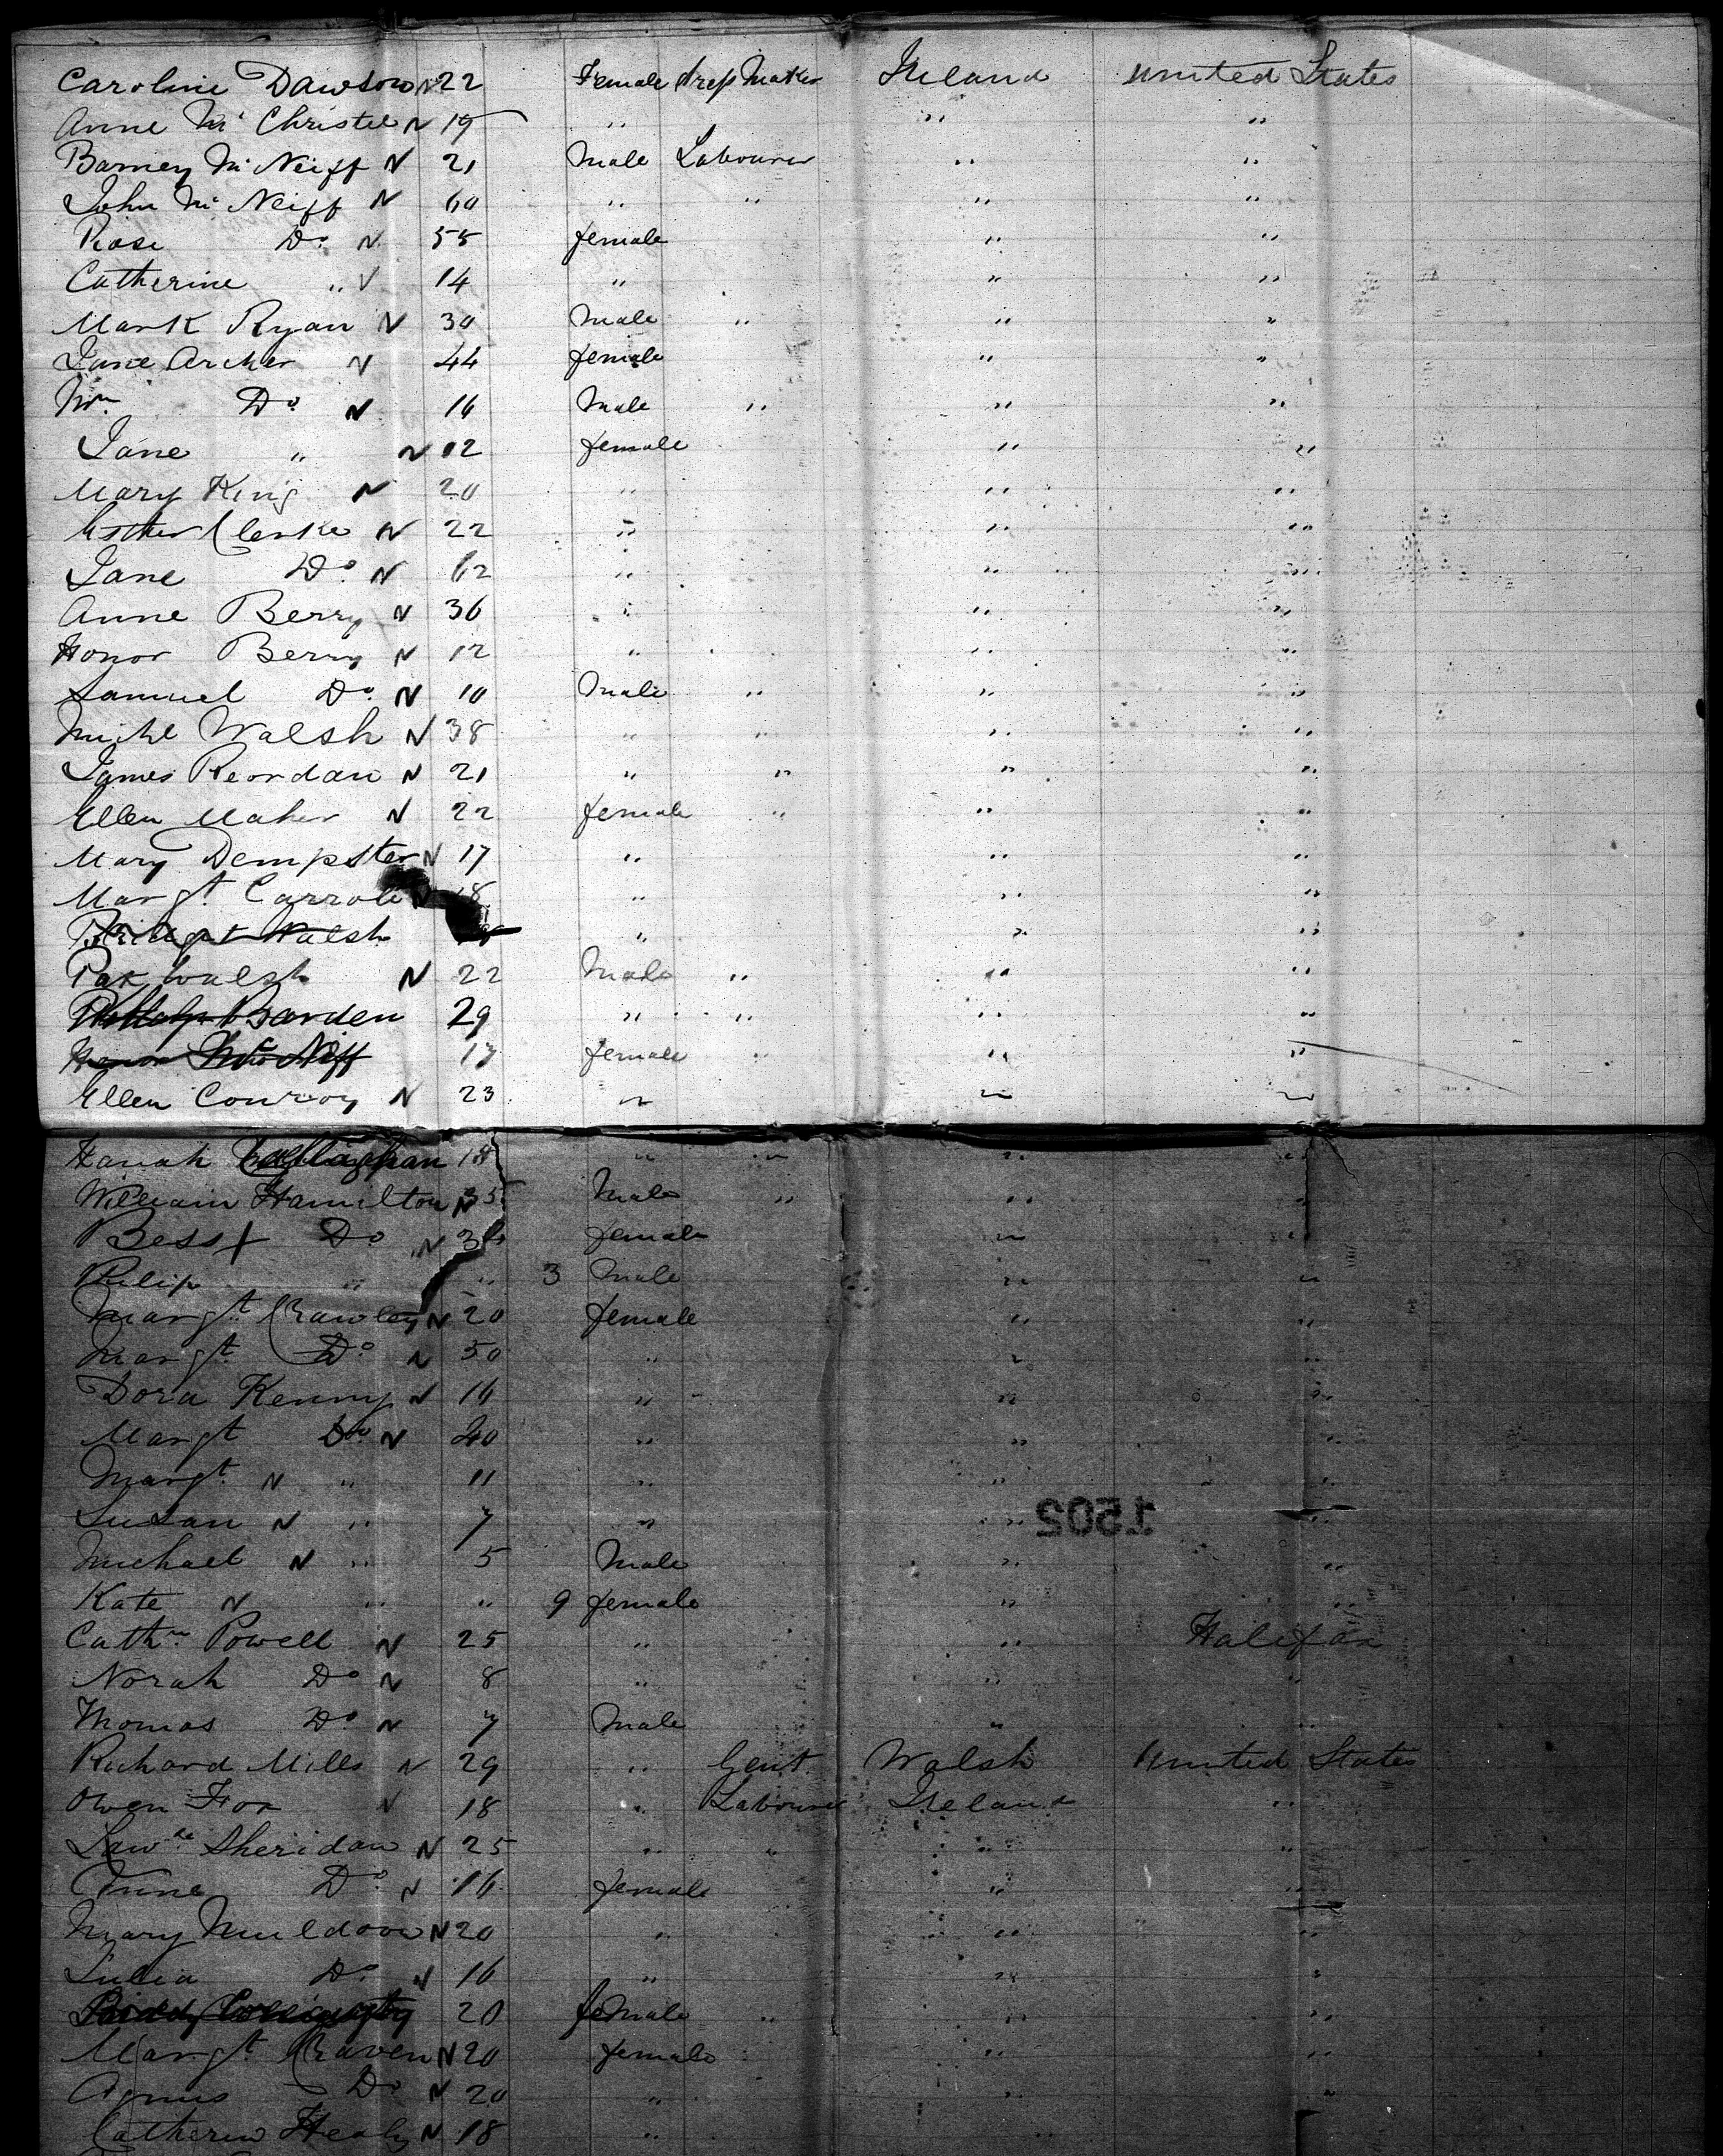 Caroline Dawson N 22 Female dress Maker Ireland United States
Anne Mc Christie N 19 " " "
Barney Mc Neiff N 21 Male Labourer " "
John Mc Neiff N 60 " " " "
Rose Do N 55 female " "
Catherine " N 14 " " "
Mark Ryan N 30 Male " " "
Jane Archer N 44 female " "
Wm Do N 16 Male " " "
Jane " N 12 female " "
Mary King N 20 " " "
Esther Clerke N 22 " " "
Jane Do N 62 " " "
Anne Berry N 36 " " "
Honor Berry N 12 " " "
Samuel Do N 10 Male " " "
Michl Walsh N 38 " " " "
James Reordan N 21 " " " "
Ellen Maher N 22 female " " "
Mary Dempster N 17 " " "
Margt Carroll N 18 " " "
Bridget Walsh " " "
Pat Walsh N 22 Male " " "
Barden 29 " " " "
Honor McNiff 17 female " " "
Ellen Conroy N 23 " " "
Hanah Callaghan 18 " " " "
William Hamilton N 35 Male " " "
Bess Do N 36 female " "
Philip " " 3 Male " "
Margt Crawley N 20 female " "
Margt Do N 50 " " "
Dora Kenny N 16 " " "
Margt Do N 40 " " "
Margt N " 11 " " "
Susan N " 7 " " "
Michael N " 5 Male " "
Kate N " " 9 female " "
Cathn Powell N 25 " " Halifax
Norah Do N 8 " " "
Thomas Do N 7 Male " "
Richard Mills N 29 " Gent Walsh United States
Owen Fox N 18 " Labourer Ireland "
Lawce Sheridan N 25 " " " "
Anne Do N 16 female " "
Mary Muldoon N 20 " " "
Julia Do N 16 " " "
20 female " " "
Margt Craven N 20 female " "
Agnus Do N 20 " " "
Catherin Healy N 18 "
1502